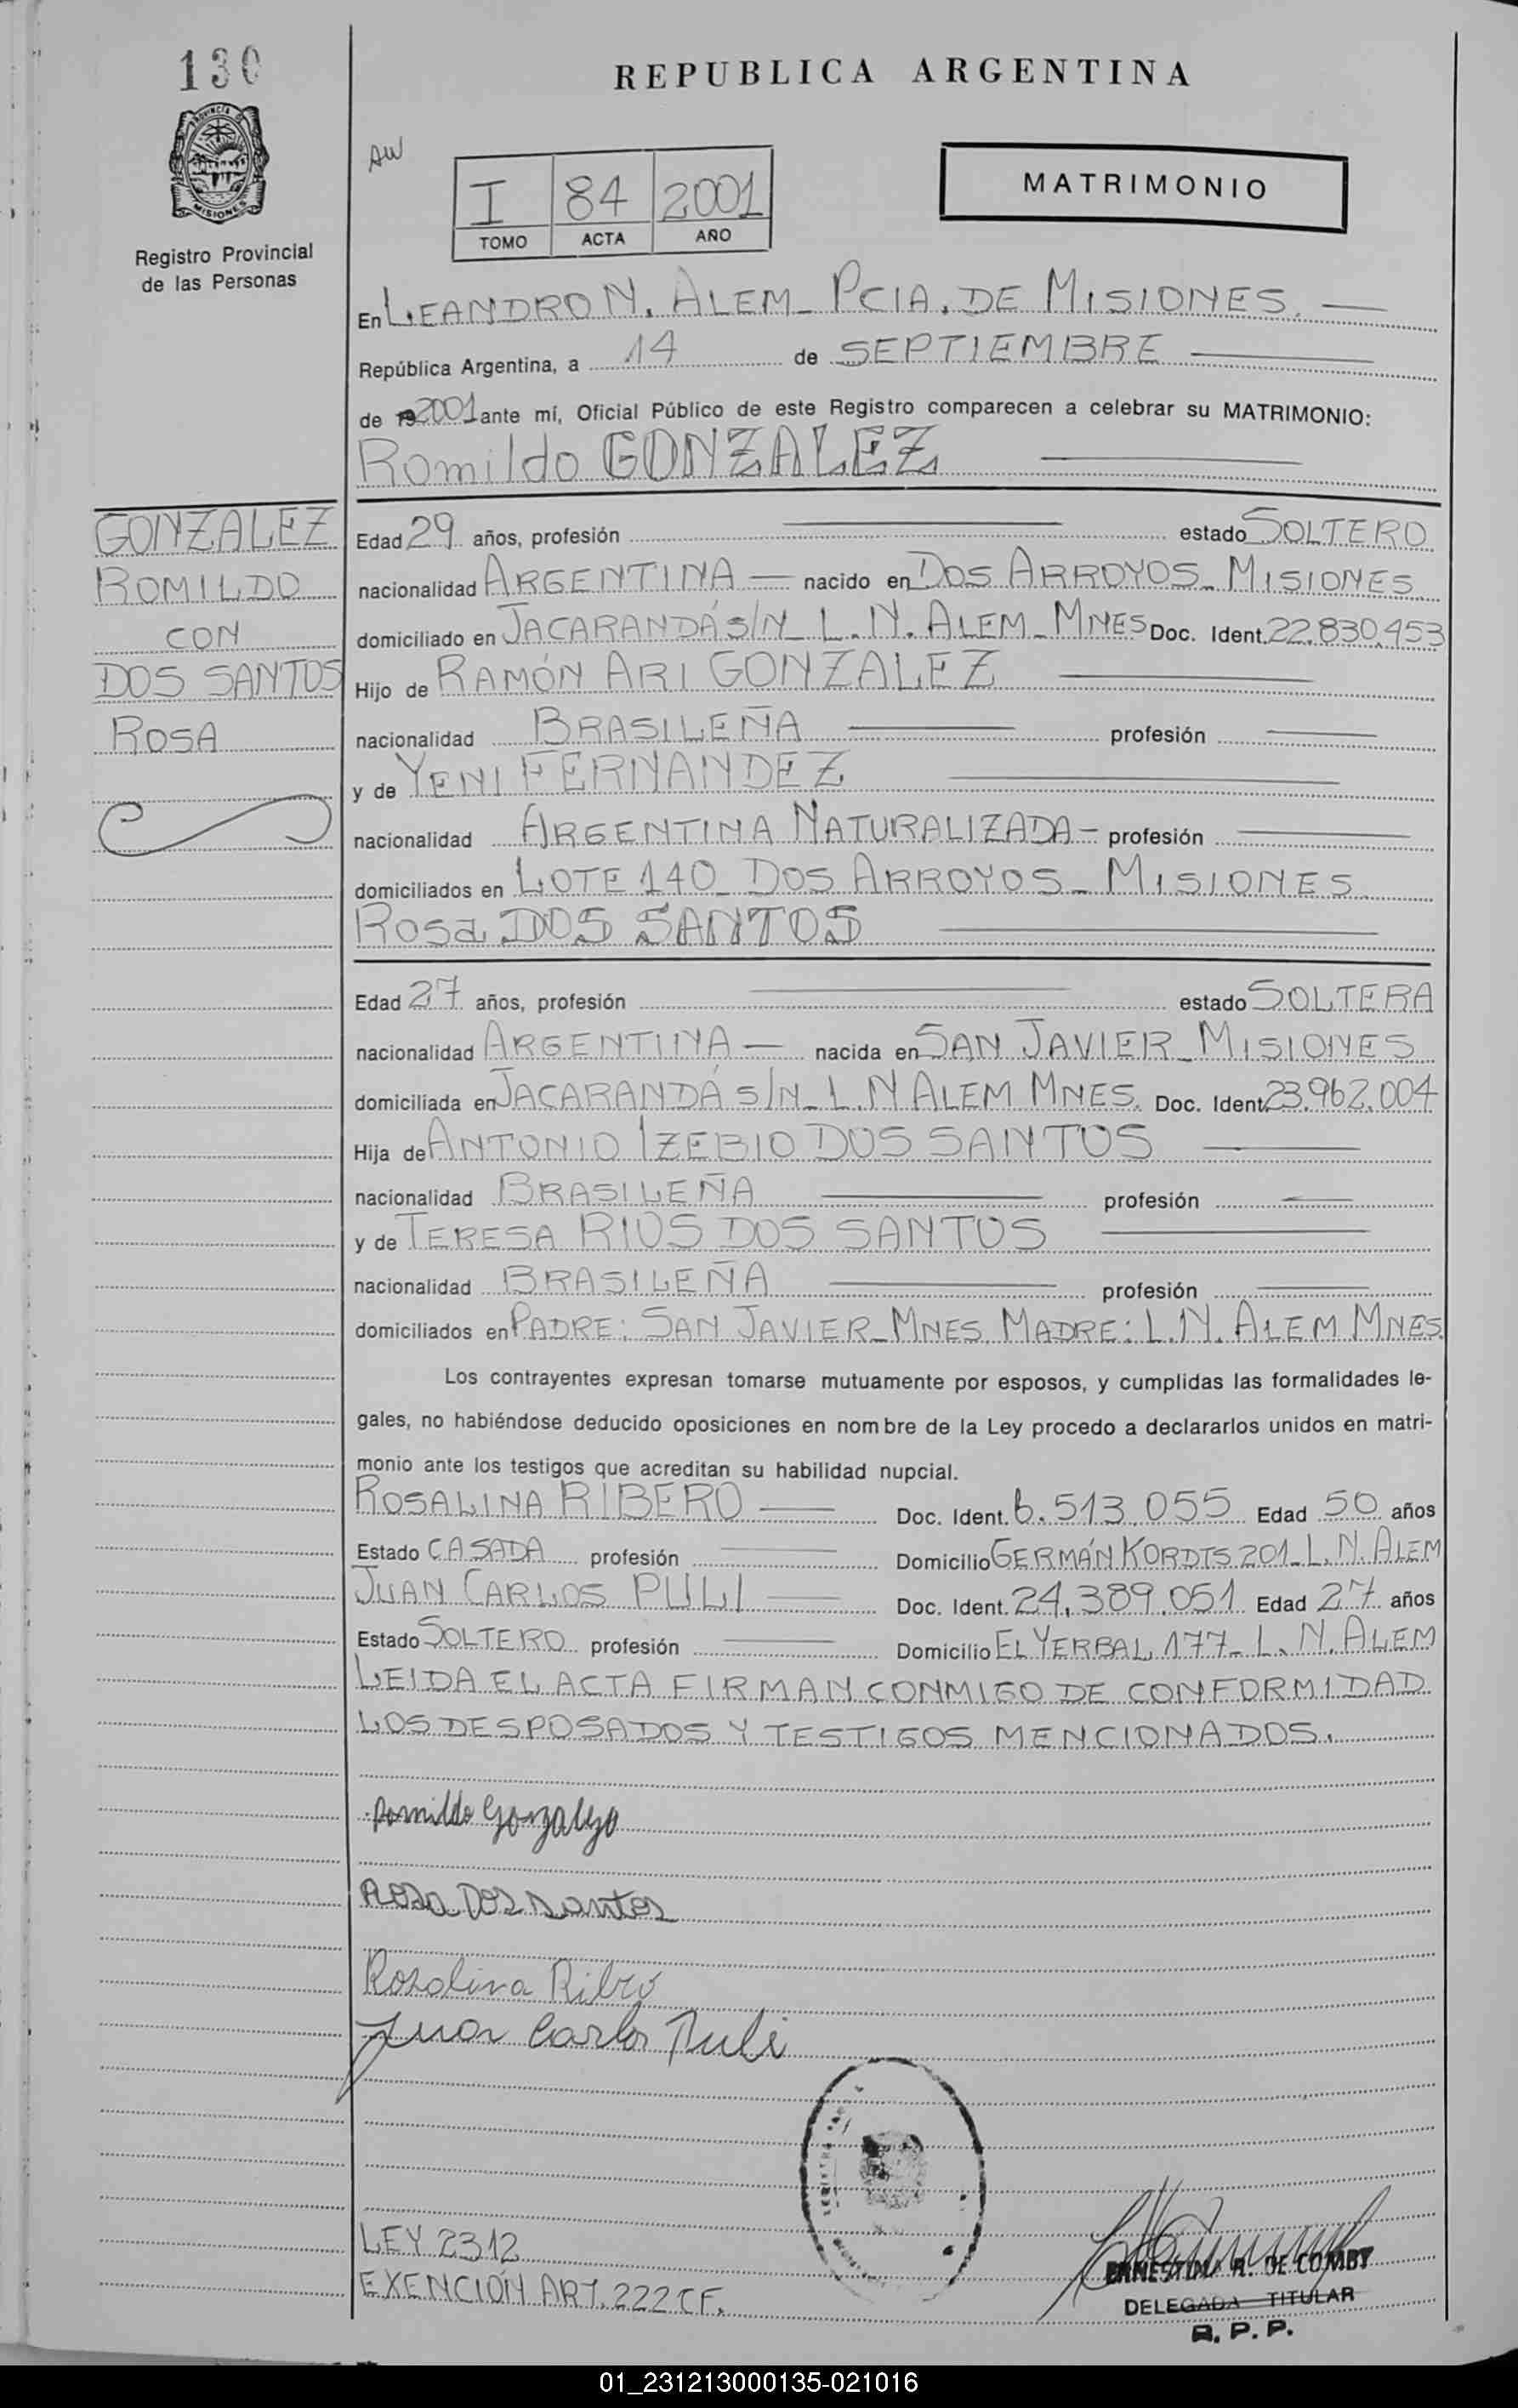 130
REPUBLICA ARGENTINA
AW
I 84 2001
TOMO ACTA AÑO
MATRIMONIO
PROVINCIA DE
MISIONES
Registro Provincial
de las Personas
En LEANDRO N. ALEM - PCIA. DE MISIONES.
República Argentina, a 14 de SEPTIEMBRE
de 19 2001 ante mí, Oficial Público de este Registro comparecen a celebrar su MATRIMONIO:
Romildo GONZALEZ
GONZALEZ
ROMILDO
CON
DOS SANTOS
ROSA
Edad 29 años, profesión estado SOLTERO
nacionalidad ARGENTINA nacido en DOS ARROYOS - MISIONES
domiciliado en JACARANDÁ S/N - L. N. ALEM - MNES Doc. Ident. 22.830.453
Hijo de RAMÓN ARI GONZALEZ
nacionalidad BRASILEÑA profesión
y de YENI FERNANDEZ
nacionalidad ARGENTINA NATURALIZADA - profesión
domiciliados en LOTE 140 - DOS ARROYOS - MISIONES
Rosa DOS SANTOS
Edad 27 años, profesión estado SOLTERA
nacionalidad ARGENTINA nacida en SAN JAVIER - MISIONES
domiciliada en JACARANDÁ S/N - L. N ALEM MNES. Doc. Ident. 23.962.004
Hija de ANTONIO IZEBIO DOS SANTOS
nacionalidad BRASILEÑA profesión
y de TERESA RIOS DOS SANTOS
nacionalidad BRASILEÑA profesión
domiciliados en PADRE: SAN JAVIER - MNES MADRE: L. N. ALEM MNES.
Los contrayentes expresan tomarse mutuamente por esposos, y cumplidas las formalidades le-
gales, no habiéndose deducido oposiciones en nombre de la Ley procedo a declararlos unidos en matri-
monio ante los testigos que acreditan su habilidad nupcial.
ROSALINA RIBERO Doc. Ident. 6.513.055 Edad 50 años
Estado CASADA profesión Domicilio GERMÁN KORDTS 201 - L. N. ALEM
JUAN CARLOS PULI Doc. Ident. 24.389.051 Edad 27 años
Estado SOLTERO profesión Domicilio EL YERBAL 177 - L. N. ALEM
LEIDA EL ACTA FIRMAN CONMIGO DE CONFORMIDAD
LOS DESPOSADOS Y TESTIGOS MENCIONADOS.
Romildo Gonzalez
Rosa Dos Santos
Rosalina Ribero
Juan Carlos Puli
LEY 2312
EXENCIÓN ART. 222 CF.
ERNESTINA R. DE COMBY
DELEGADA TITULAR
R. P. P.
01_231213000135-021016